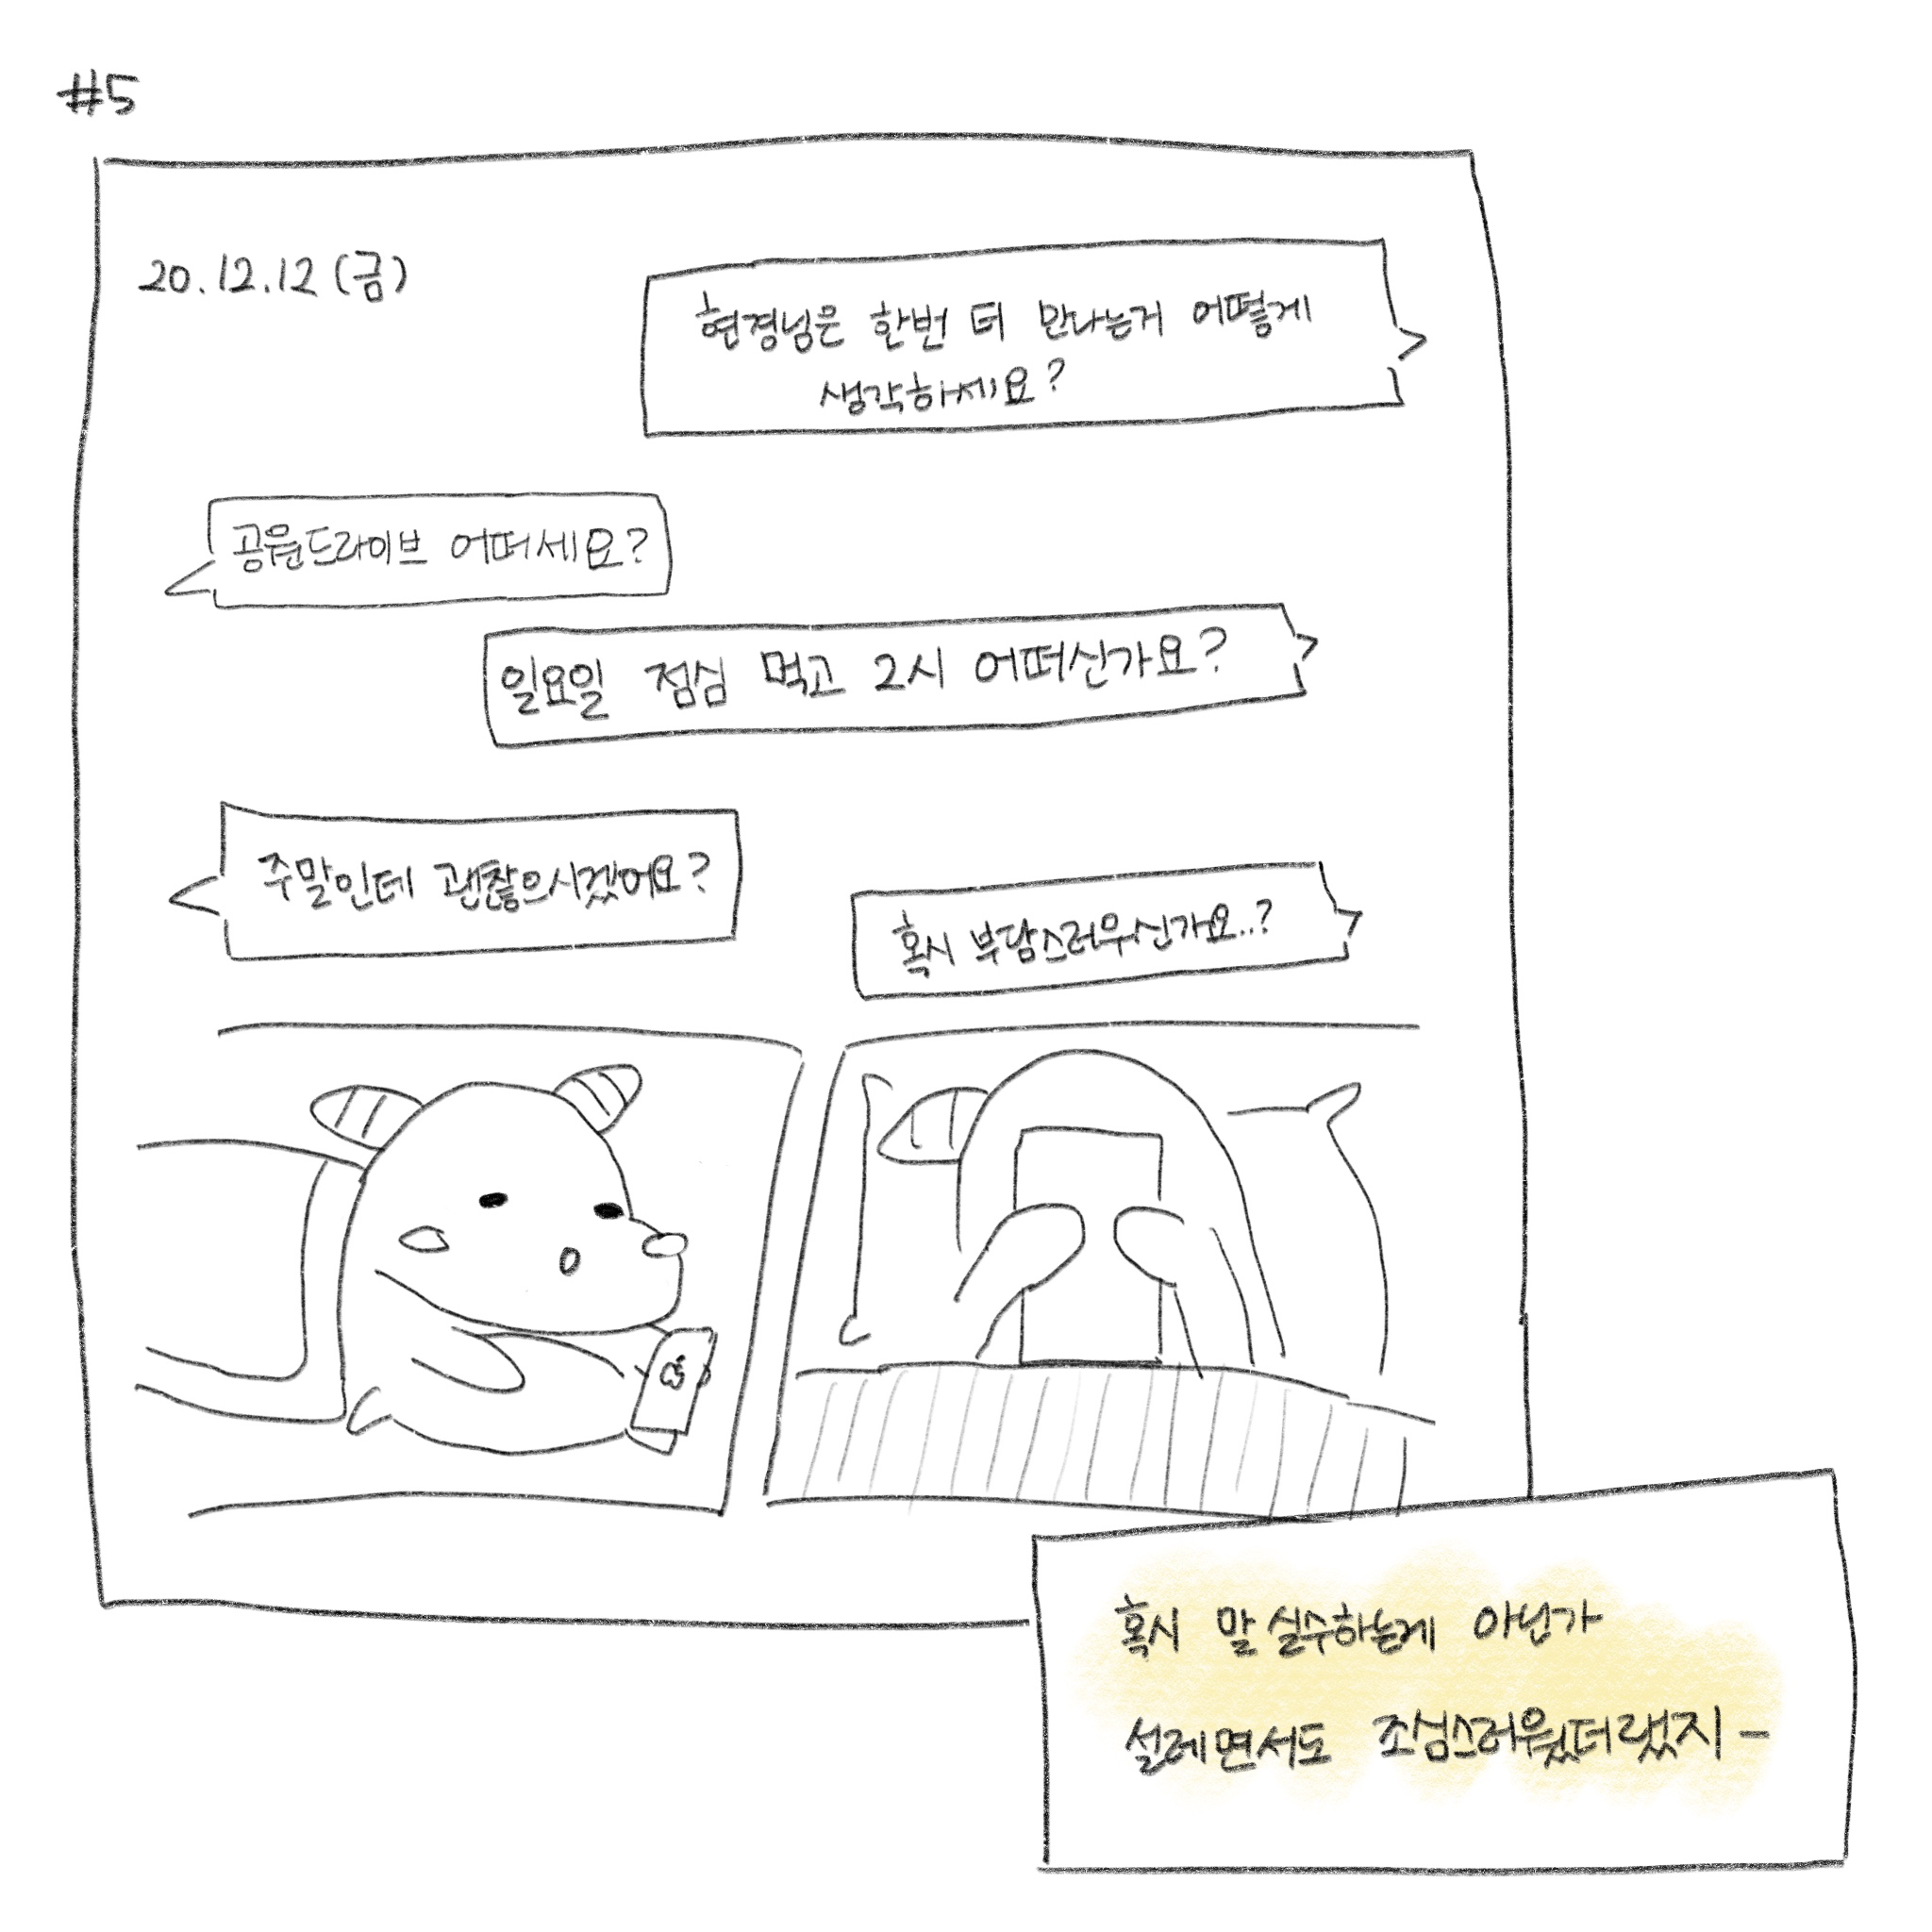 #5
20.12.12 (금)
현경님은 한번 더 만나는거 어떻게
생각하세요?
공원드라이브 어떠세요?
일요일 점심 먹고 2시 어떠신가요?
주말인데 괜찮으시겠어요?
혹시 부담스러우신가요..?
혹시 말실수하는게 아닌가
설레면서도 조심스러웠더랬지-